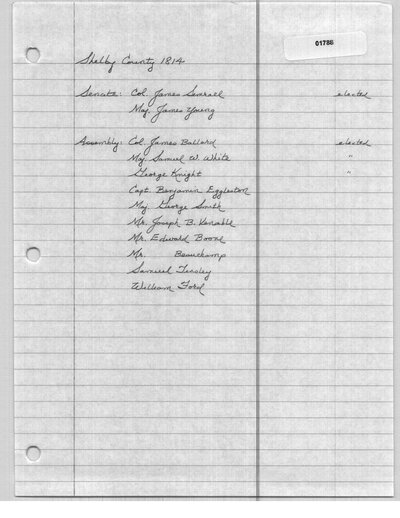 01786
Shelby County 1814
Senate: Col. James Simrall elected
Maj. James Young
Assembly: Col. James Ballard elected
Maj. Samuel W. White "
George Knight "
Capt. Benjamin Eggleston
Maj. George Smith
Mr. Joseph B.
Mr. Edward Boone
Mr. Beauchamp
Samuel Tinsley
William Ford